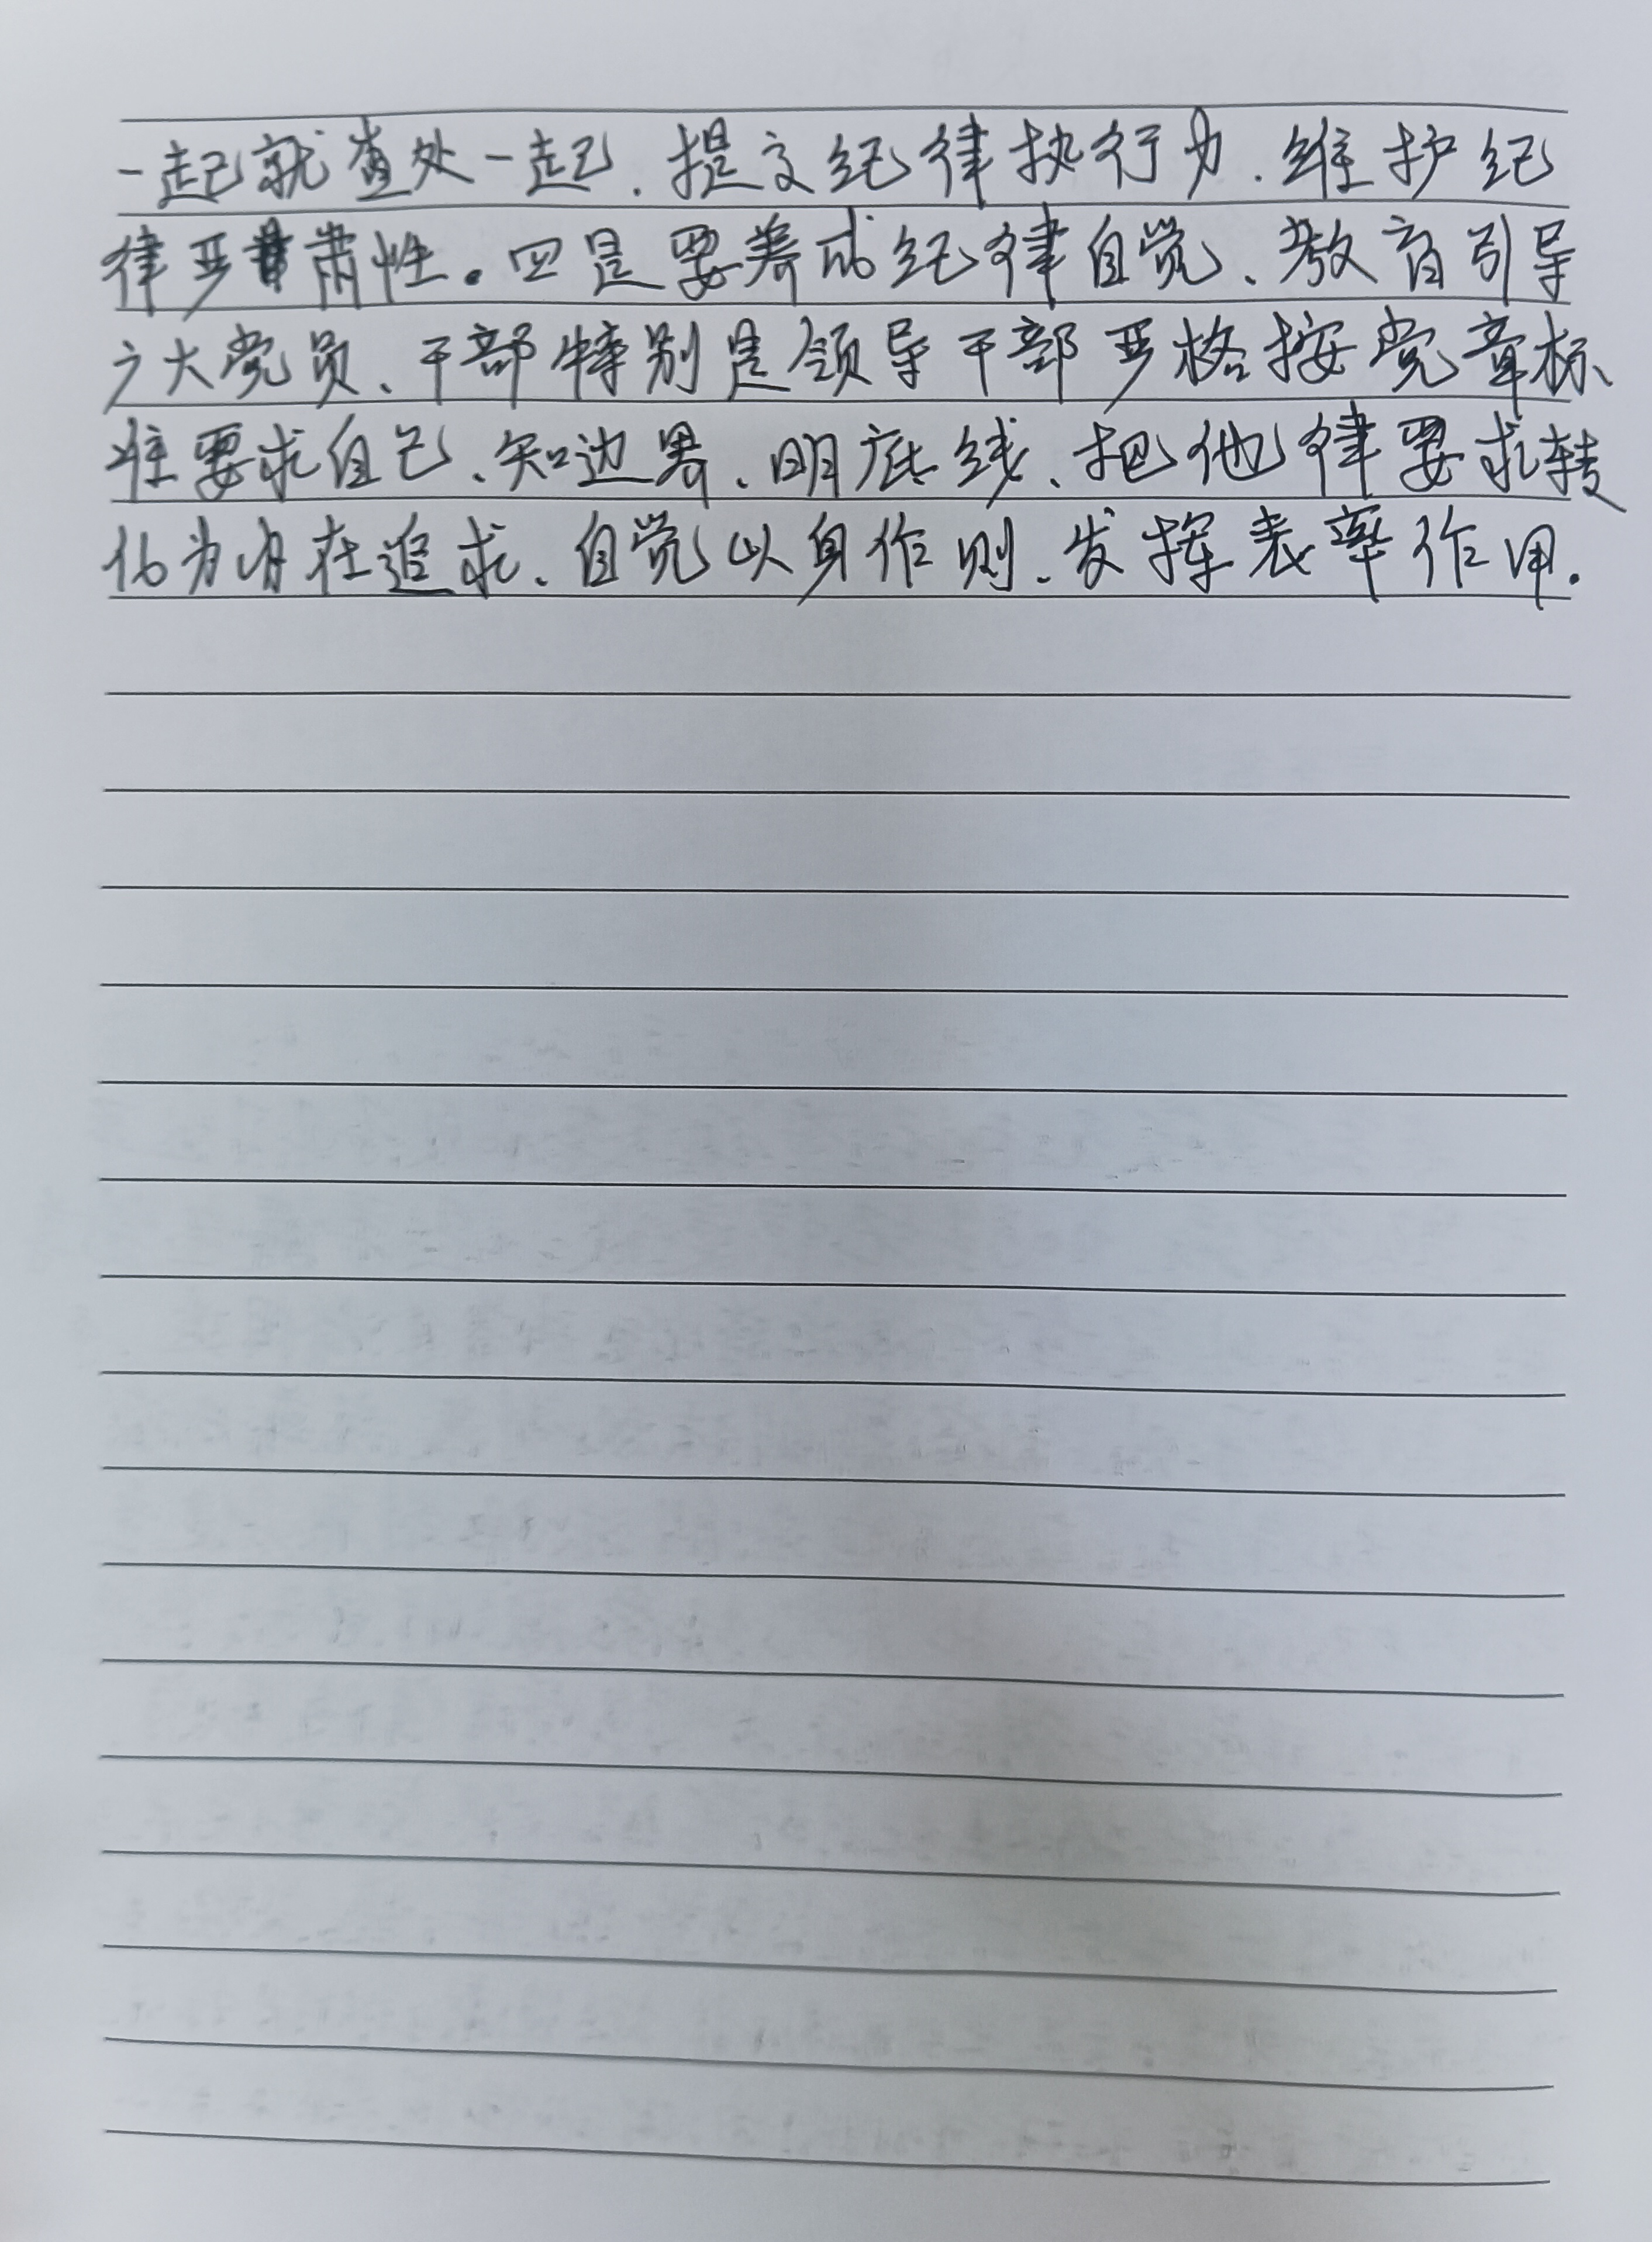 一起就查处一起、提文纪律执行力、维护纪
律严肃性。四是要养成纪律自觉、教育引导
广大党员、干部特别是领导干部严格按党章标
准要求自己、知边界、明底线、把他律要求转
化为内在追求、自觉以身作则、发挥表率作用.